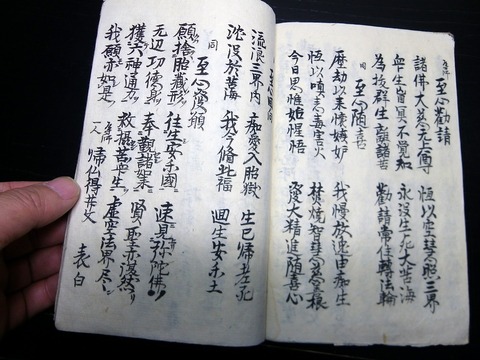 至心勧請
諸佛大慈无上尊　恒以空慧照三界
衆生盲冥不覚知　永没生死大苦海
為抜群生離諸苦　勧請常住轉法輪
同　至心随喜
歴劫以来懐嫉妬　我慢放逸由痴生
恒以瞋恚毒害火　焚焼智慧慈善根
今日思惟始惺悟　發大精進随喜心
流浪三界内　痴愛入胎獄　生已帰老死
沈没於苦海　我今修此福　回生安楽土
同　至心發願
願捨胎蔵形　往生安楽國　速見弥陀佛
无辺功徳身　奉覲諸如来　賢聖亦復然
獲六神通力　救摂苦衆生　虚空法界尽
我願亦如是　一人　帰仏得菩　表白